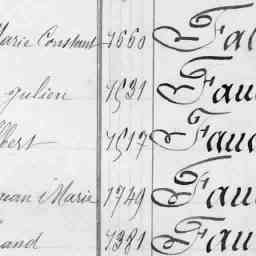 Marie Constant 1660 Fal
Julien 1531 Fau
bert 1517 Fau
Jean Marie 1749 Fau
and 1381 Fau